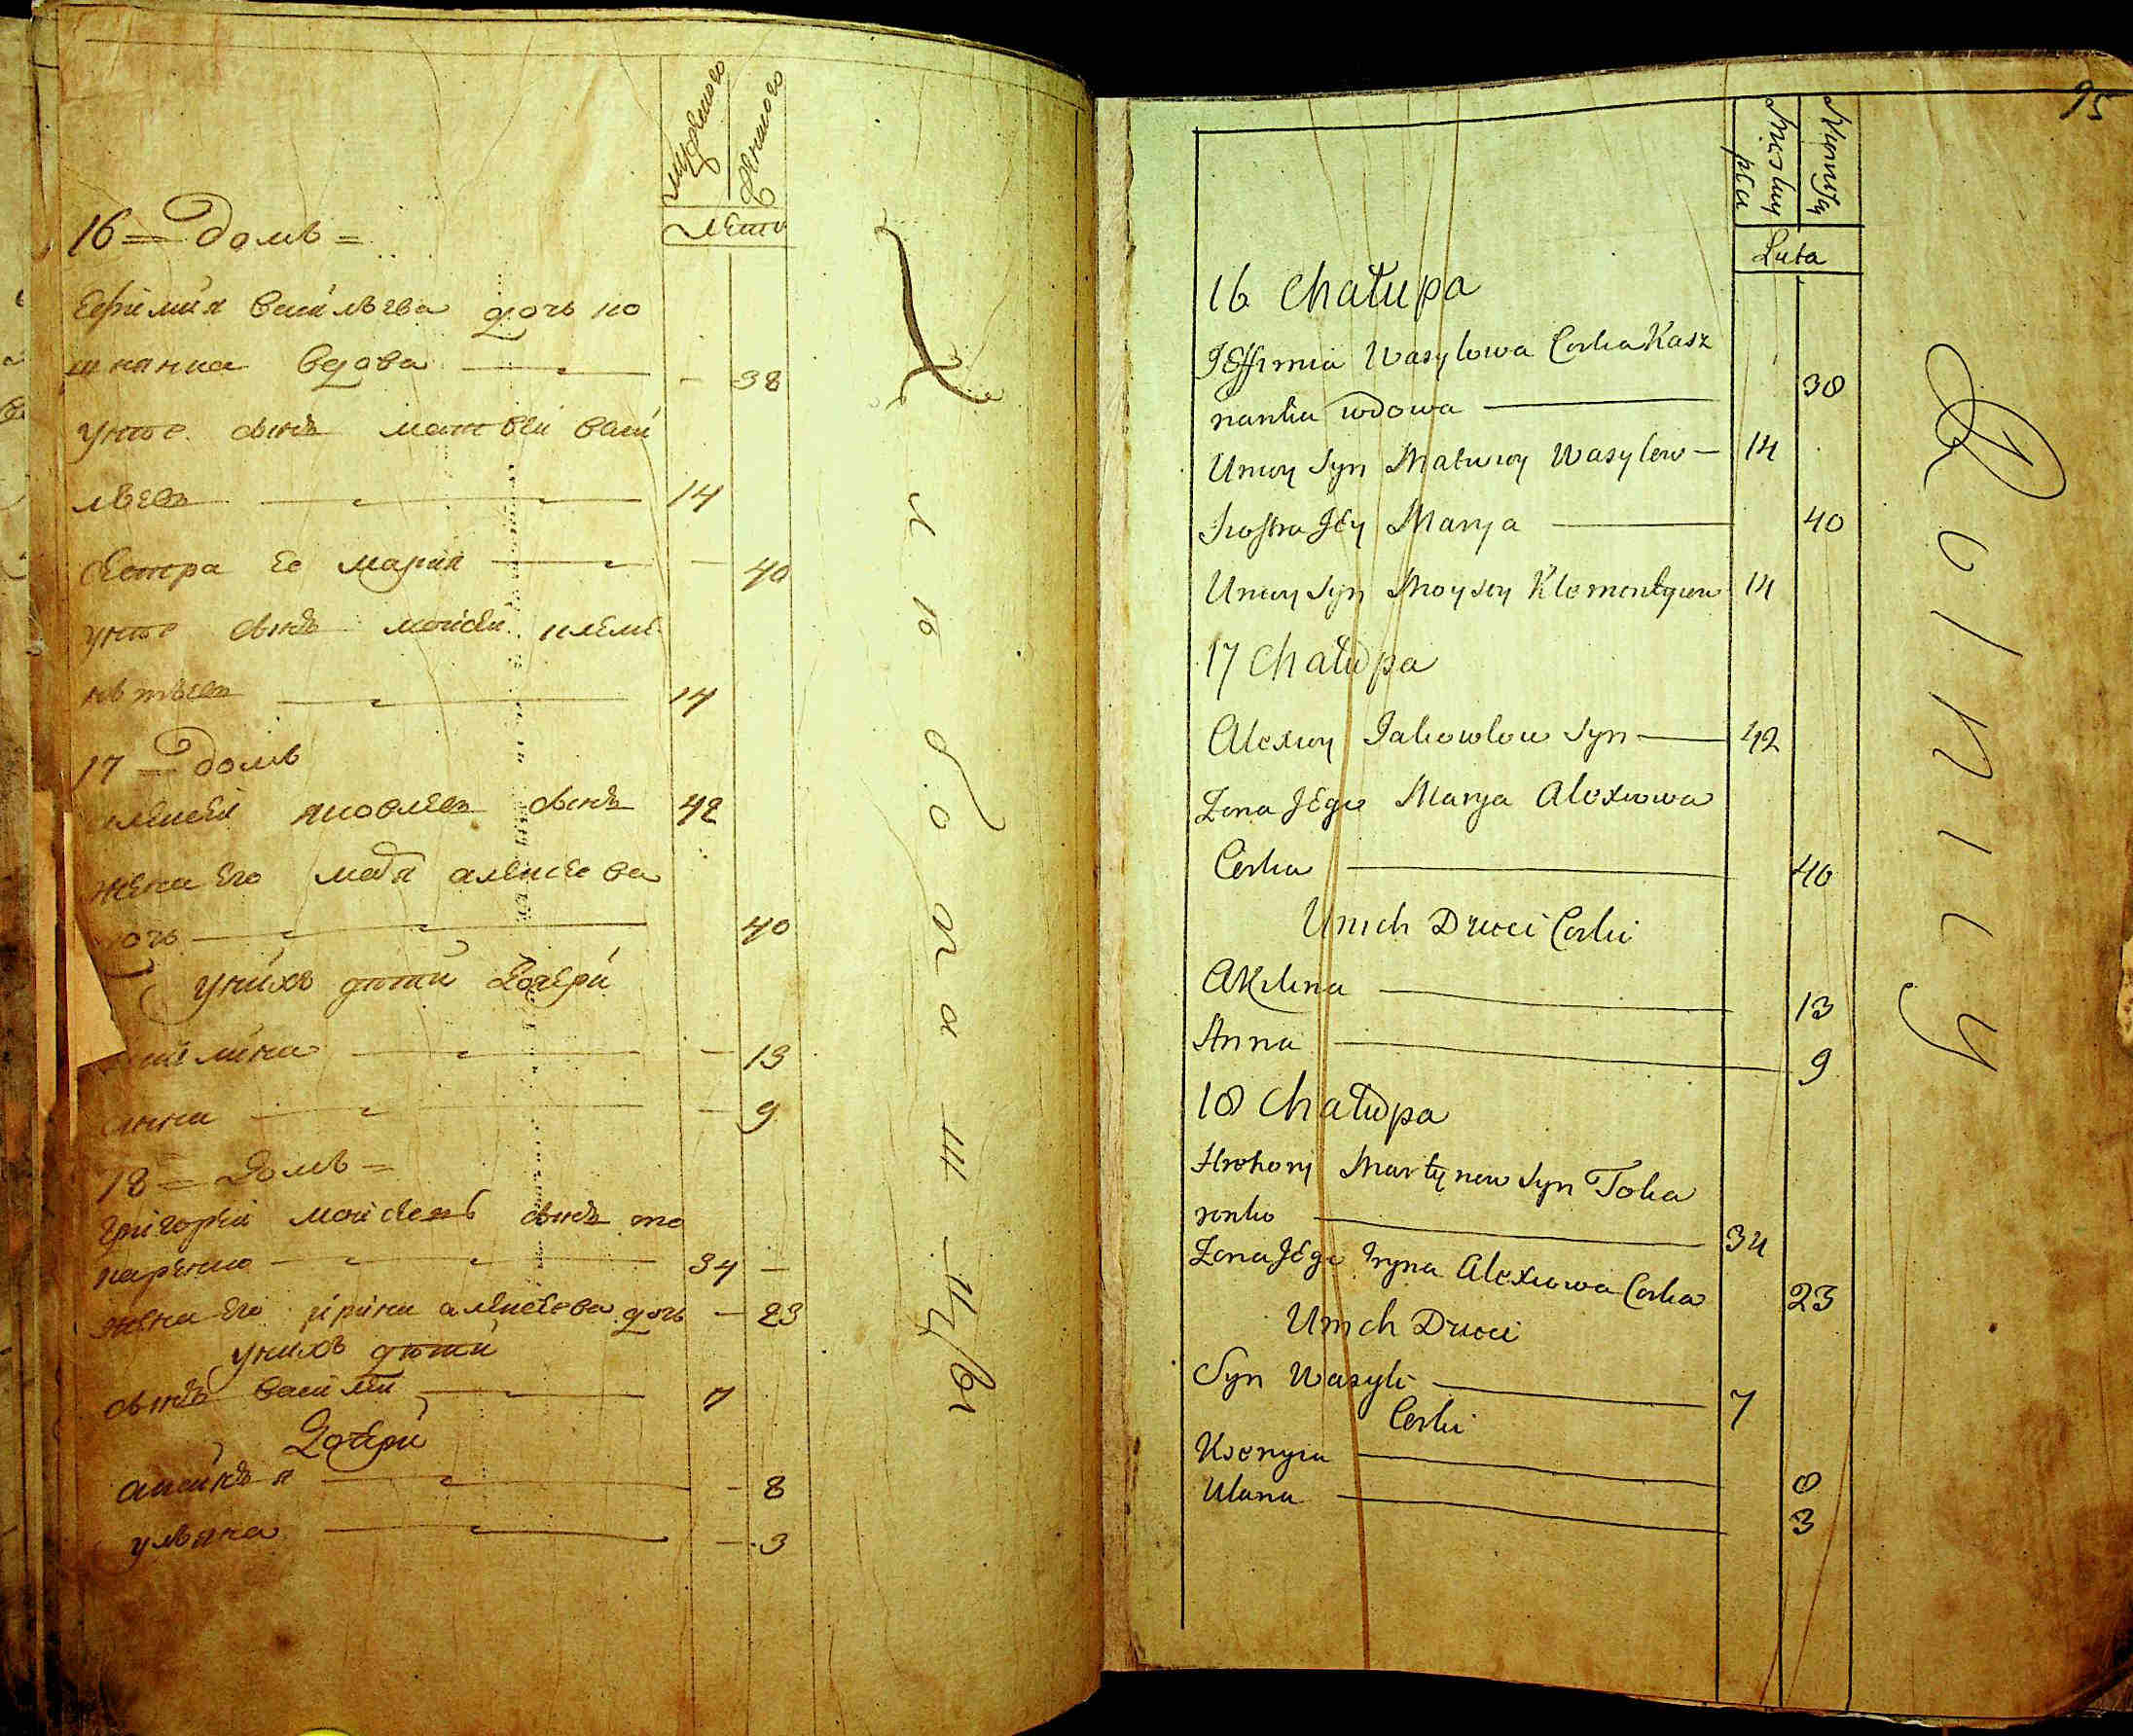 мужеского
женского
лета
16 = домъ =
Ефимия васильева дочь ко
шканка вдова — 38
унее сынъ матвей васи
льевъ — 14
сестра ее мария — 40
унее сынъ мойсей клеме
нтьевъ — 14
17 = домъ
алексей яковлевъ сынъ 42
жена его мария алексеева
дочь — 40
унихъ дети дочери
акилина — 13
анна — 9
18 = домъ =
григорей сынъ то
каренко — 34 —
жена его ирина алексеева дочь — 23
унихъ дети
сынъ василий — 7
дочери
— 8
ульяна — 3
Хлѣбопашцы
95
Męskiey
płci
Niewisty
Lata
16 Chałupa
JEffimia Wasylowa Corka Kasz
nanka wdowa — 38
Uniey Syn Matwiey Wasylew — 14
Siostra JEy Marya — 40
Uniey Syn Moysey Klementyew 14
17 Chałupa
Alexiey Jakowlew Syn — 42
Zona JEgo Marya Alexiowa
Corka — 40
Unich Dzieci Corki
Akilina — 13
Anna — 9
18 Chałupa
Hrehory Martynew Syn Toka
renko — 34
Zona JEgo Iryna Alexiowa Corka 23
Unich Dzieci
Syn Wasyli — 7
Corki
Ksenyia — 8
Ulana — 3
Rolnicy